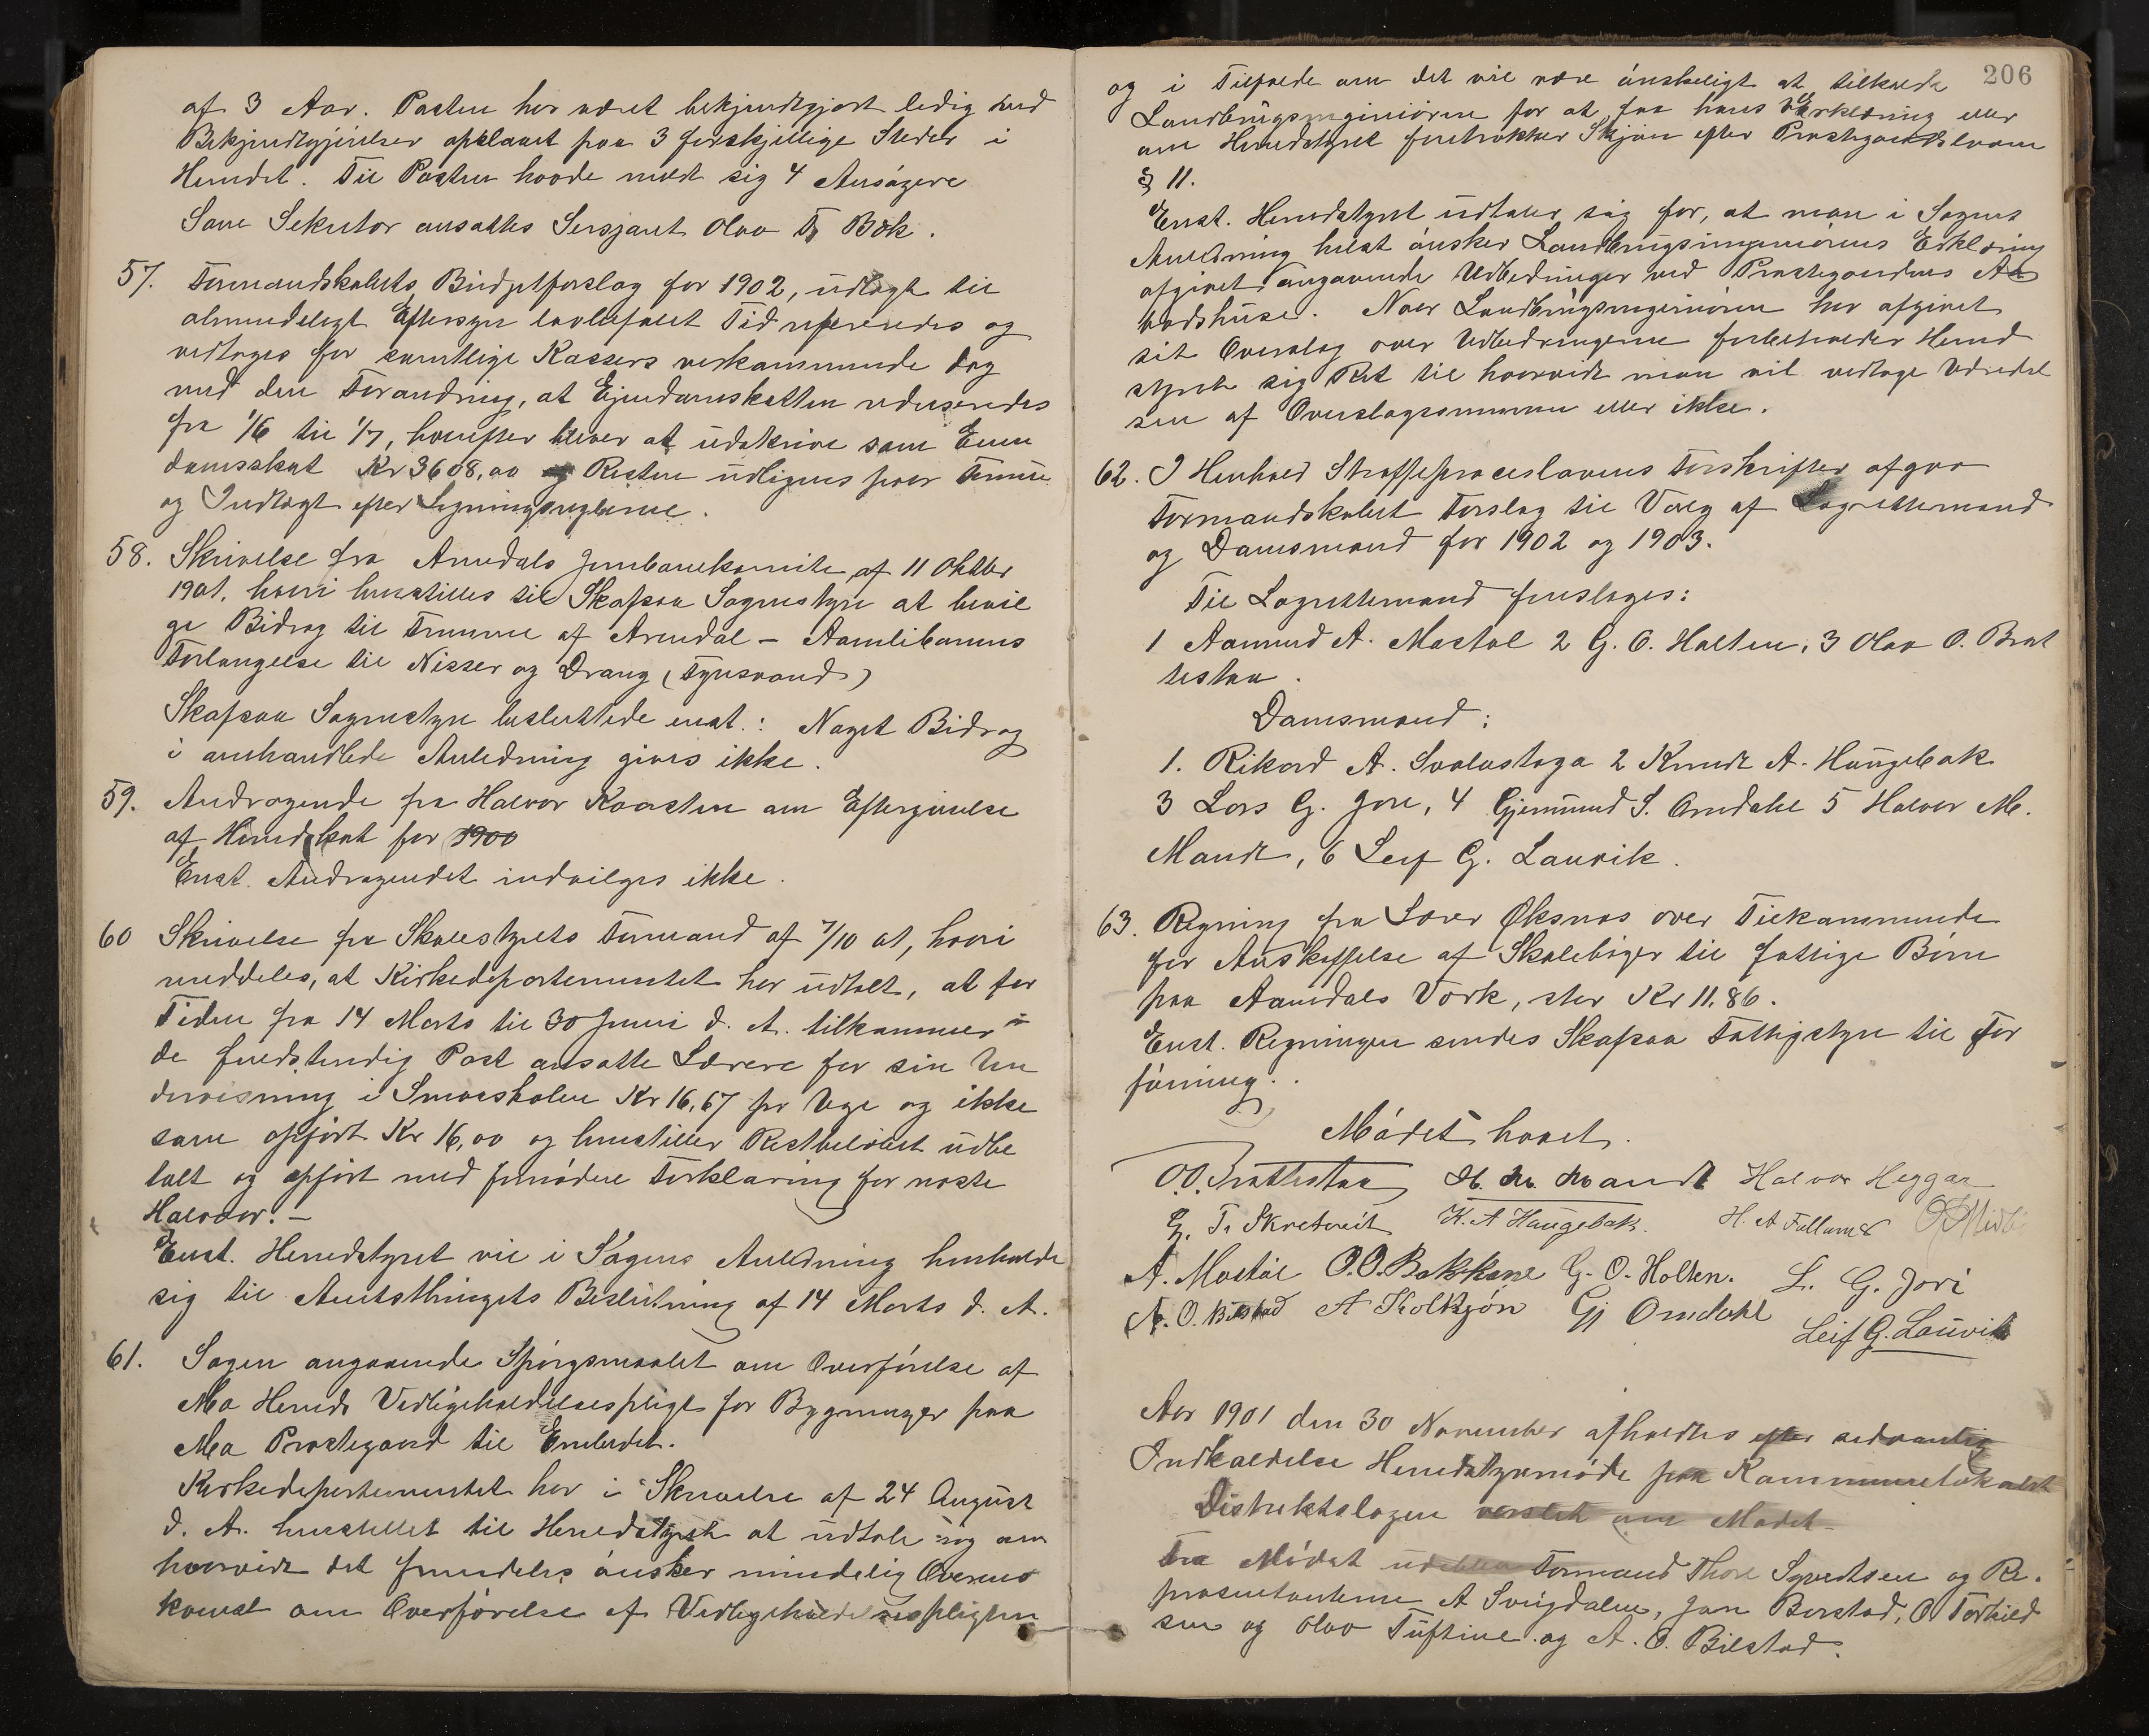 af 3 Aar. Posten har været bekjendtgjort ledig ved
Bekjendtgjørelser opslaaet paa 3 forskjellige Steder i
Herredet. Til Posten havde meldt sig 4 Ansøgere
Som Sekretær ansattes Sersjant Olav Tr Bøk.
57. Formandskabets Budjetforslag for 1902, udlagt til
almindeligt Eftersyn lovbefalet Tid refereredes og
vedtoges for samtlige Kassers vedkommende dog
med den Forandring, at Ejendomsskatten reduseredes
fra 1/6 til 1/7, hvorefter bliver at udskrive som Eien
domsskat Kr 3608,00 og Resten udlignes paa Formue
og Indtægt efter Ligningsreglerne.
58. Skrivelse fra Arendals Jernbanekomite af 11 Oktbr
1901, hvori henstilles til Skafsaa Sognestyre at bevil
ge Bidrag til Fremme af Arendal - Aamlibanens
Forlængelse til Nisser og Drang (Fyrisvand)
Skafsaa Sognestyre besluttede enst.: Noget Bidrag
i omhandlede Anledning gives ikke.
59. Andragende fra Halvor Kaasten om Eftergivelse
af Herredskat for 1900
Enst. Andragendet indvilges ikke.
60 Skrivelse fra Skolestyrets Formand af 7/10 01, hvori
meddeles, at Kirkedepartementet har udtalt, at for
Tiden fra 14 Marts til 30 Juni d. A. tilkommer
de fuedstendig Post ansatte Lærere for sin Un
dervisning i Smaaskolen Kr 16,67 pr Uge og ikke
som opført Kr 16,00 og henstiller Restbeløbet udbe
talt og opført med fornøden Forklaring for næste
Halvaar. -
Enst. Herredstyret vil i Sagens Anledning henholde
sig til Amtsthingets Beslutning af 14 Marts d. A.
61. Sagen angaaende Spørgsmaalet om Overførelse af
Mo Herreds Vedligeholdelsespligt for Bygninger paa
Mo Præstegaard til Embedet.
Kirkedepartementet har i Skrivelse af 24 August
d. A. henstillet til Herredstyret at udtale sig om
hvorvidt det fremdeles ønsker mindelig Overens
komst om Overførelse af Vedligeholdelsespligten
206
og i Tilfælde om det vil være ønskeligt at tilkalde
Landbrugsingeniøren for at faa hans Erklæring eller
om Herredstyret foretrækker Skjøn efter Præstegaardsloven
§ 11.
Enst. Herredstyret udtaler sig for, at man i Sagens
Anledning helst ønsker Landbrugsingeniørens Erklæring
afgivet angaaende Udbedringer ved Præstegaardens Aa
bodshuse. Naar Landbrugsingeniøren har afgivet
sit Overslag over Udbedringerne forbeholder Herred
styret sig Ret til hvorvidt man vil vedtage Udredel
sen af Overslagssummen eller ikke.
62. I Henhold Straffeproceslovens Forskrifter afgav
Formandskabet Forslag til Valg af Lagrettemænd
og Domsmænd for 1902 og 1903.
Til Lagrettemænd foreslages:
1 Aamund A. Mostøl 2 G. O. Holten, 3 Olav O. Brat
testaa.
Domsmænd:
1. Rikard A. Svalastoga 2 Knudt A. Haugebak
3 Lars G. Jore, 4 Gjermund S. Omdahl 5 Halvor M.
Mandt, 6 Leif G. Lauvik.
63. Regning fra Lærer Øksnæs over Tilkommende
for Anskaffelse af Skolebøger til fattige Børn
paa Aamdals Værk, stor Kr 11.86.
Enst. Regningen sendes Skafsaa Fattigstyre til For
føining.
Mødet hævet.
O.O. Brattestaa H. M. Mandt Halvor Heggar
G. T. Skretereit K. A Haugebak. H. A Fallamo
A. Mostøl O.O. Bakkane G. O. Holten. L. G. Jori
A. O. Bilstad A Kolkjøn Gj Omdahl
Leif G. Lauvik
Aar 1901 den 30 November afholdtes efter sedvanlig
Indkaldelse Herredstyremøde paa Kommunelokalet
Distriktslægen varslet om Mødet
Fra Mødet udeblev Formand Thore Syvertsen og Re-
præsentanterne A Svigdalen, Jon Berstad, O Torkild
sen og Olav Tuftine og A. O. Bilstad.